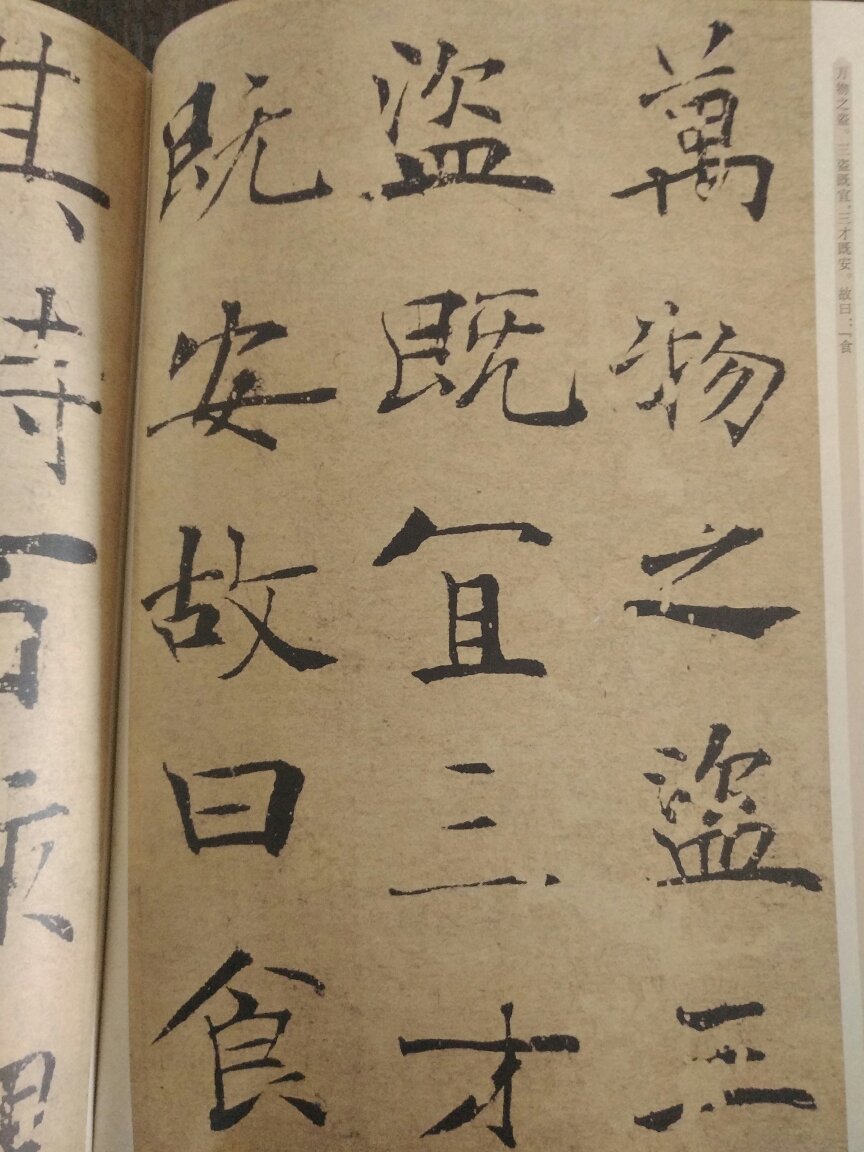 万物之盗。三盗既宜，三才既安。故曰：「食
萬物之盜三
盜既宜三才
既安故曰食
其時百